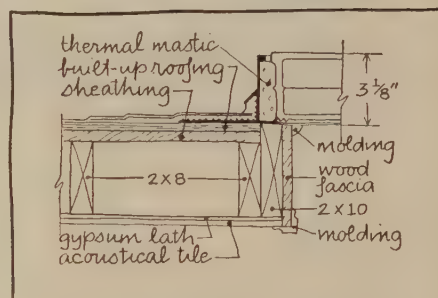 thermal mastic
built-up roofing
sheathing
3 1/8"
molding
wood
fascia
2 x 8
2 x 10
gypsum lath
acoustical tile
molding